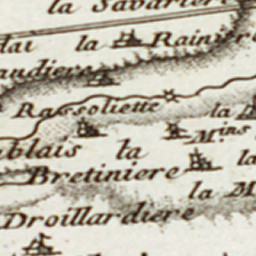 la Savariere
la Rainiere
Rassoliette
la
Mins
la
la
Bretiniere
la M
Droillardiere